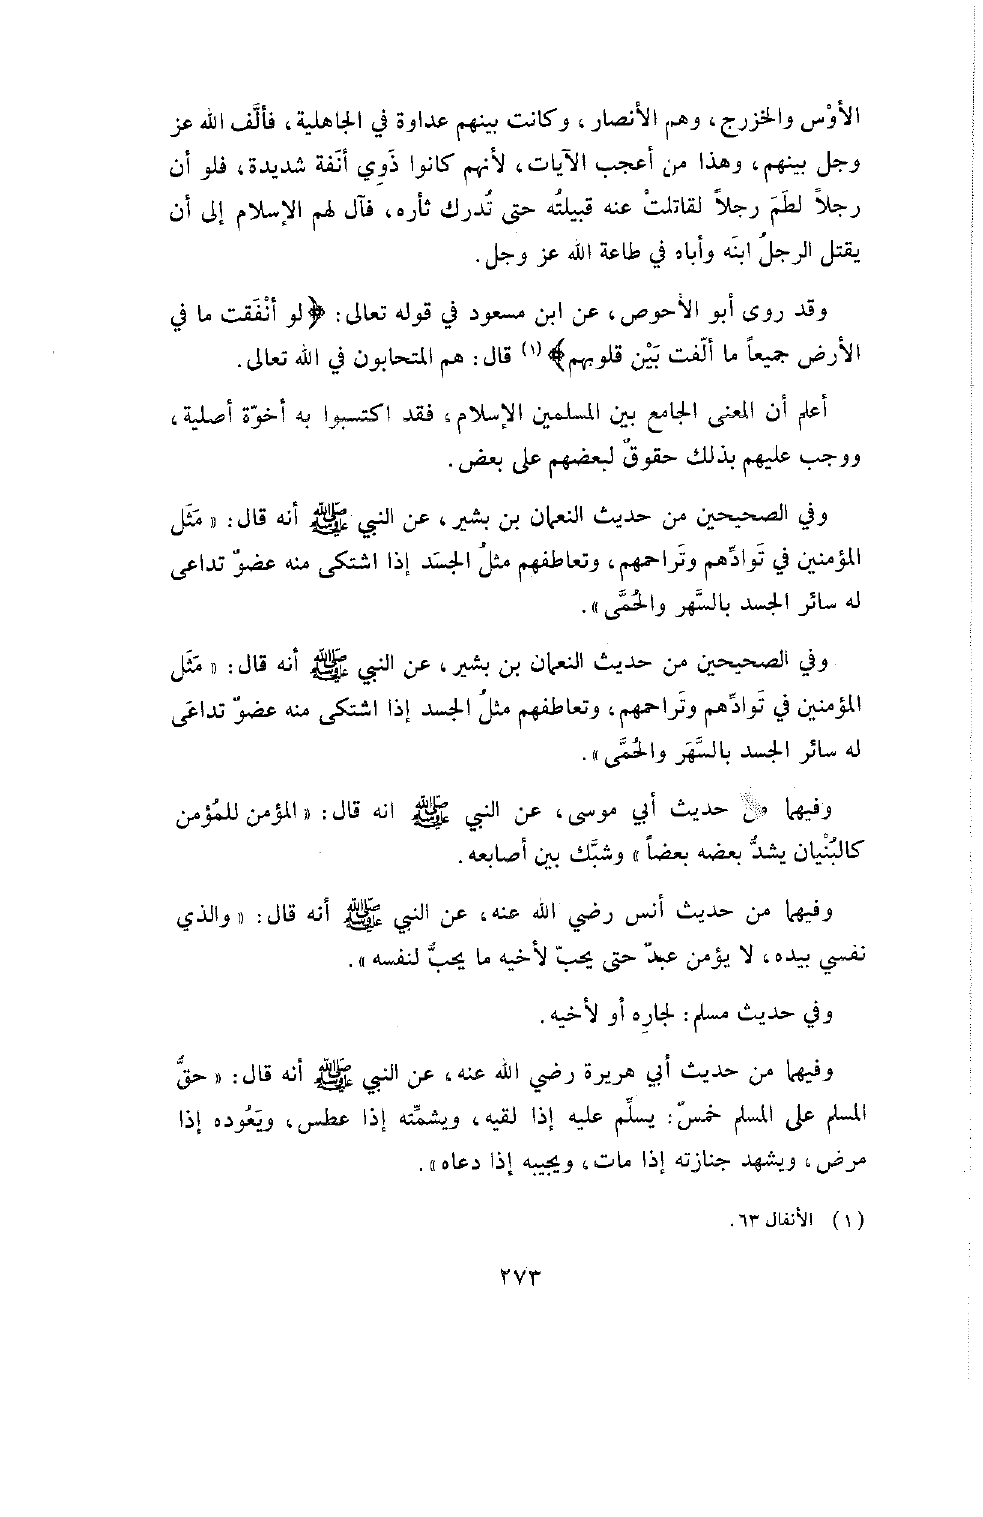 الأوْس والخزرج، وهم الأنصار، وكانت بينهم عداوة في الجاهلية، فألَّف الله عز
وجل بينهم، وهذا من أعجب الآيات، لأنهم كانوا ذَوِي أنَفة شديدة، فلو أن
رجلاً لطَمَ رجلاً لقاتلتْ عنه قبيلتُه حتى تُدرك ثأره، فآل لهم الإسلام إلى أن
يقتل الرجلُ ابنَه وأباه في طاعة الله عز وجل.
وقد روى أبو الأحوص، عن ابن مسعود في قوله تعالى: ﴿لو أنْفَقت ما في
الأرض جميعاً ما ألّفت بَيْن قلوبهم﴾(١) قال: هم المتحابون في الله تعالى.
أعلم أن المعنى الجامع بين المسلمين الإسلام، فقد اكتسبوا به أخوّة أصلية،
ووجب عليهم بذلك حقوقٌ لبعضهم على بعض.
وفي الصحيحين من حديث النعمان بن بشير، عن النبي ﷺ أنه قال: « مَثَل
المؤمنين في تَوادِّهم وتَراحمهم، وتعاطفهم مثلُ الجسَد إذا اشتكى منه عضوٌ تداعى
له سائر الجسد بالسَّهر والحُمَّى».
وفي الصحيحين من حديث النعمان بن بشير، عن النبي ﷺ أنه قال: « مَثَل
المؤمنين في تَوادِّهم وتَراحمهم، وتعاطفهم مثلُ الجسد إذا اشتكى منه عضوٌ تداعَى
له سائر الجسد بالسَّهَر والحُمَّى».
وفيها من حديث أبي موسى، عن النبي ﷺ انه قال: « المؤمن للمُؤمن
كالبُنْيان يشدُّ بعضه بعضاً» وشبَّك بين أصابعه.
وفيها من حديث أنس رضي الله عنه، عن النبي ﷺ أنه قال: « والذي
نفسي بيده، لا يؤمن عبدٌ حتى يحبّ لأخيه ما يحبُّ لنفسه».
وفي حديث مسلم: لجارِه أو لأخيه.
وفيها من حديث أبي هريرة رضي الله عنه، عن النبي ﷺ أنه قال: « حقُّ
المسلم على المسلم خمسٌ: يسلِّم عليه إذا لقيه، ويشمِّته إذا عطس، ويَعُوده إذا
مرض، ويشهد جنازته إذا مات، ويجيبه إذا دعاه».
(١) الأنفال ٦٣.
٢٧٣